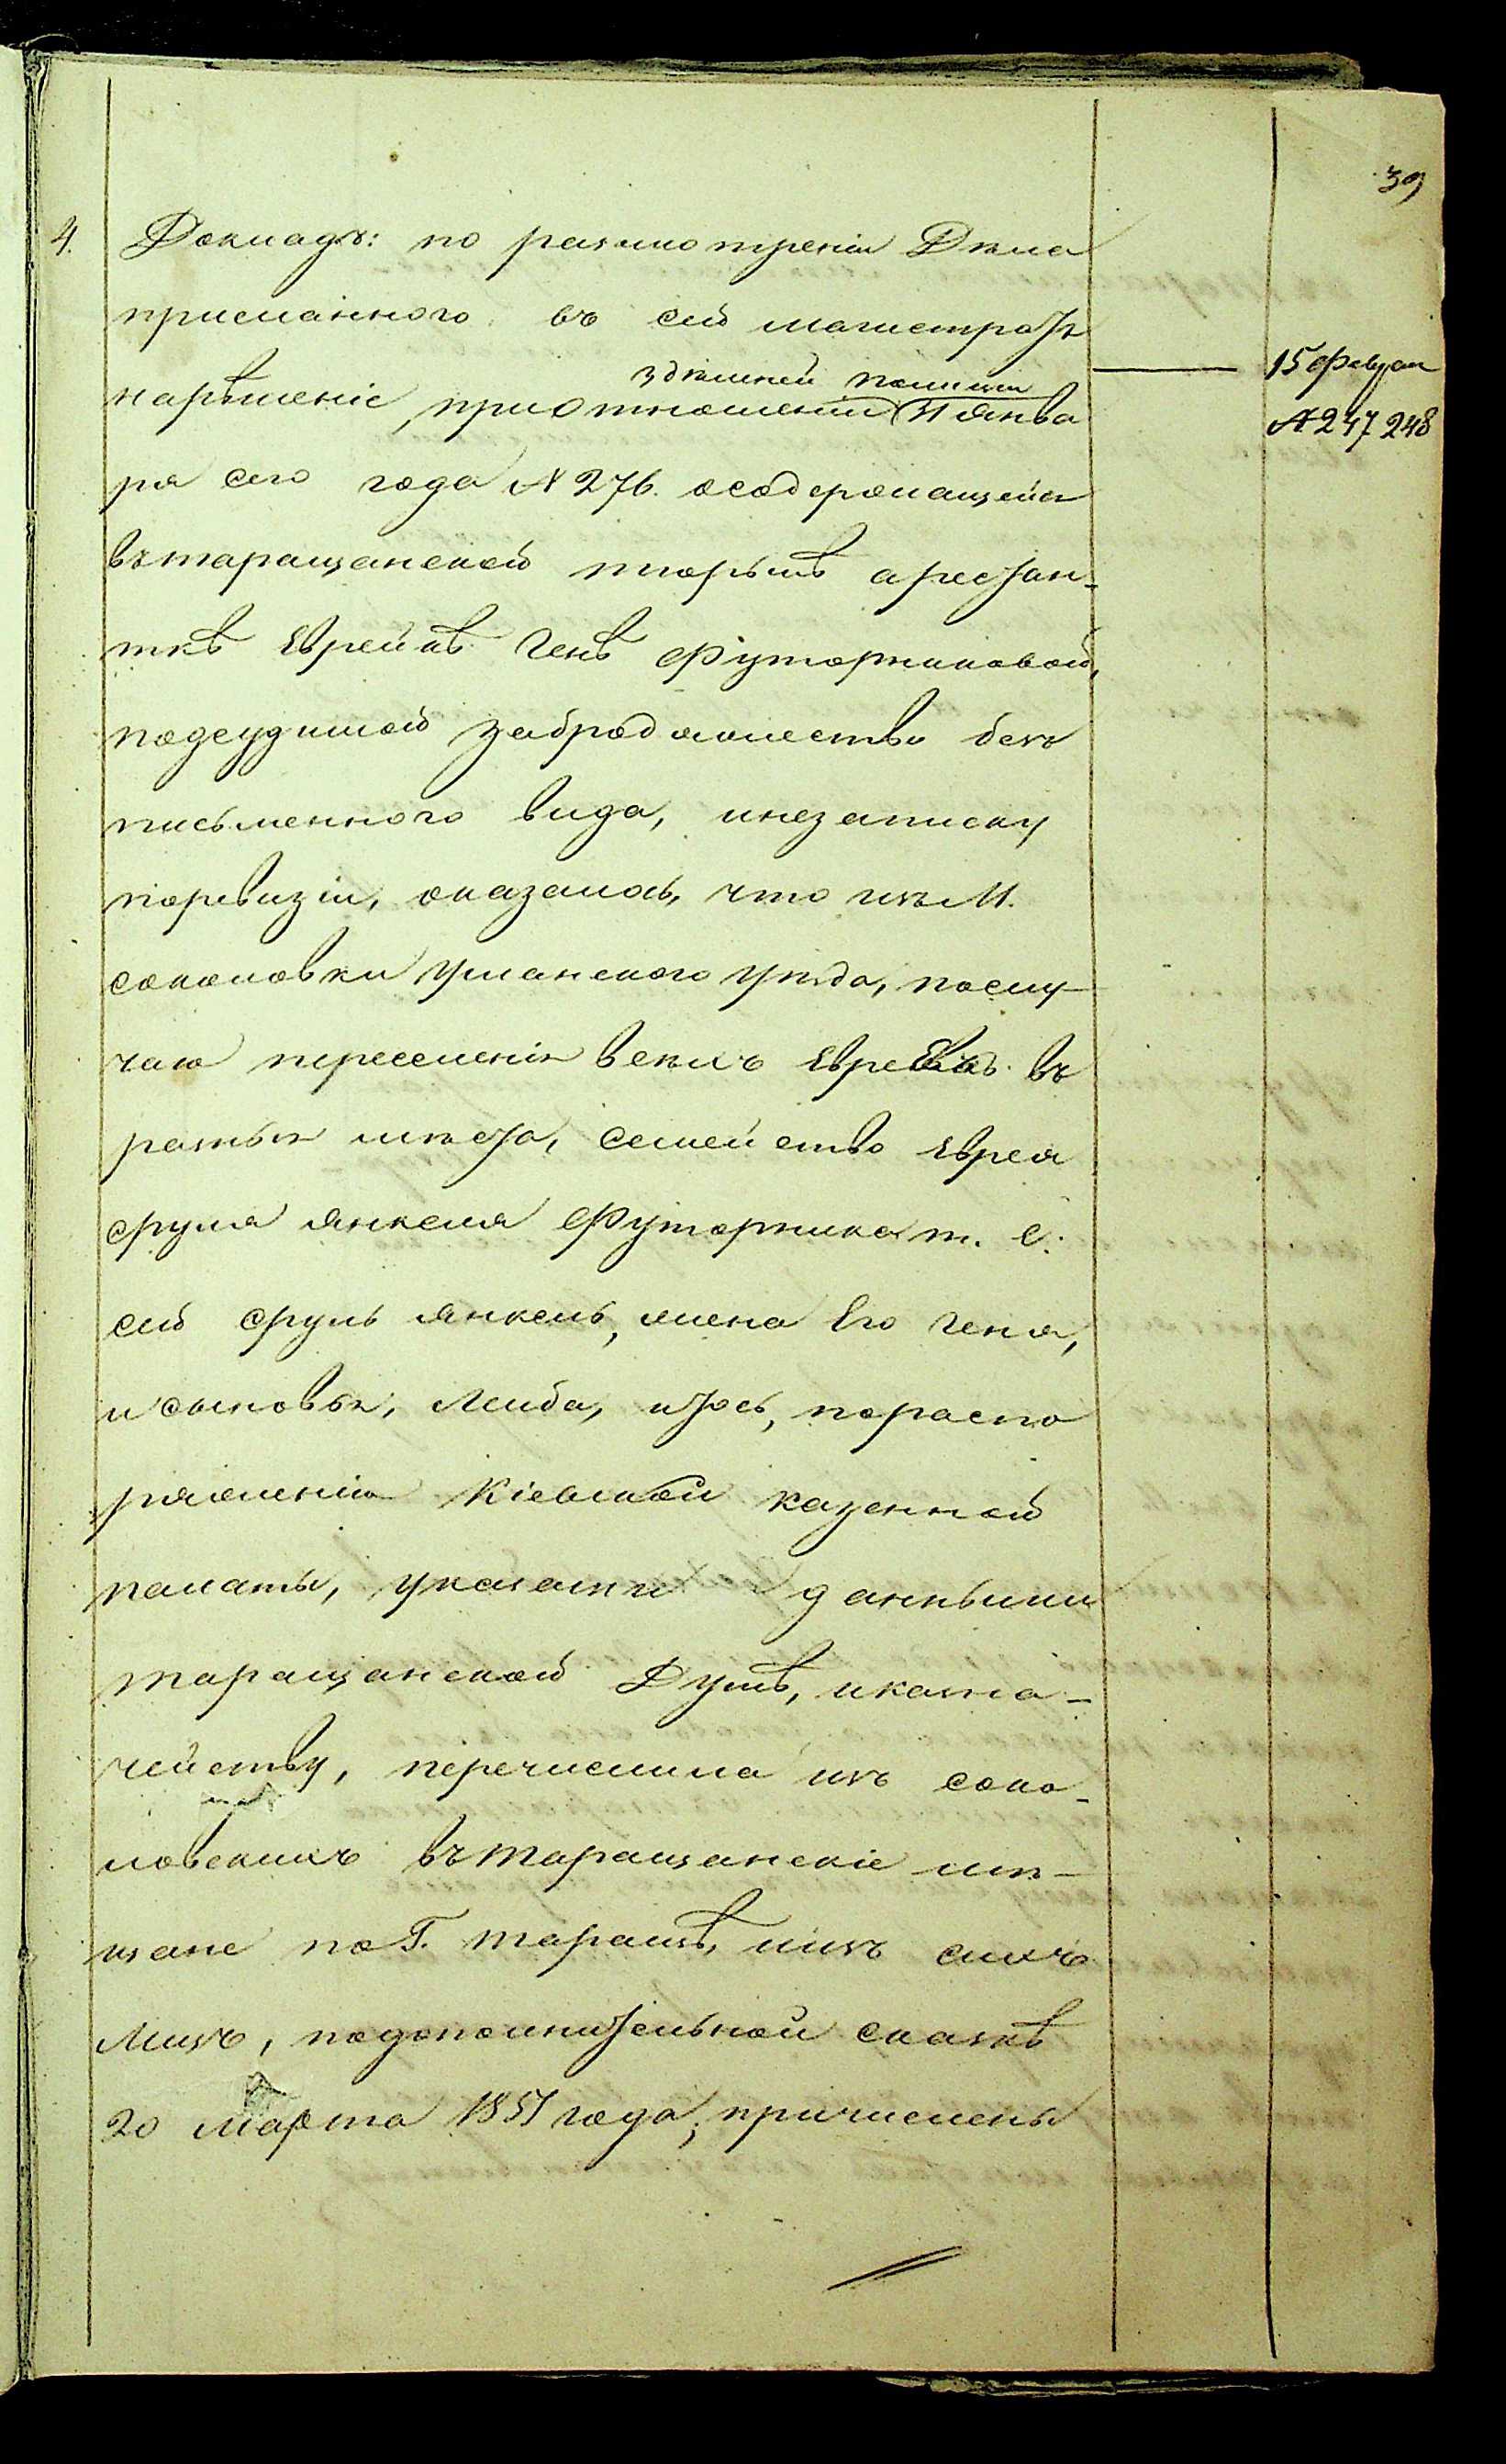 39
4. Докладъ: по разсмотренiи Дѣла
присланного въ сей магистратъ
нарѣшенiе, приотношенiи здѣшней полицiи 31 янва
15 Февраля
№ 247 248
ря сего года № 276. осодержащейся
вътаращанской тюрьмѣ арестан-
ткѣ Еврейкѣ Генѣ Футорниковой,
подсудимой забродяжество безъ
письменного вида, инезаписку
поревизiи, оказалось, что изъ М.
соколовки Уманского уѣзда, послу-
чаю переселенiя всѣхъ Евреевъ въ
разныя мѣста, семейство Еврея
сруля янкеля Футорника т. е.
сей сруль янкель, жена Его Геня,
и сыновья, Лейба, иЮсь, пораспо
ряженiю Кiевской казенной
палаты, указами данными
таращанской Думѣ, иказна-
чейству, перечислила изъ соко-
ловскихъ вътаращанскiе мѣ-
щане по Г. таращѣ, иизъ сихъ
лицъ, подополнительной сказкѣ
20 марта 1851 года, причислены